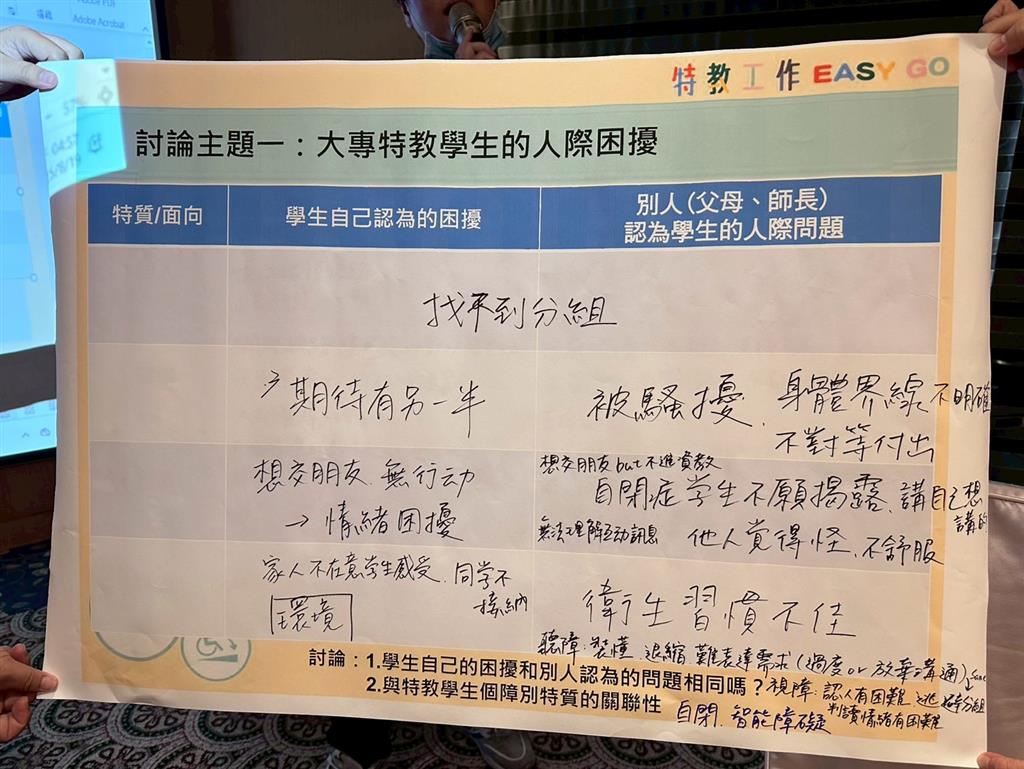 Adobe Acrobat
特教工作 EASY GO
討論主題一：大專特教學生的人際困擾
特質/面向
學生自己認為的困擾
別人(父母、師長)
認為學生的人際問題
找不到分組
期待有另一半
被騷擾、身體界線不明確
不對等付出
想交朋友、無行动
→ 情緒困擾
想交朋友but不進資教
自閉症学生不願揭露、講自己想
講的
無法理解互动訊息
他人覚得怪、不舒服
家人不在意学生感受、同学不
接納
環境
衛生習慣不佳
聽障：裝懂、退縮、難表達需求(過度or放棄溝通)
討論：1.學生自己的困擾和別人認為的問題相同嗎？
視障：認人有困難
判讀情緒有困難
2.與特教學生個障別特質的關聯性
自閉、智能障礙